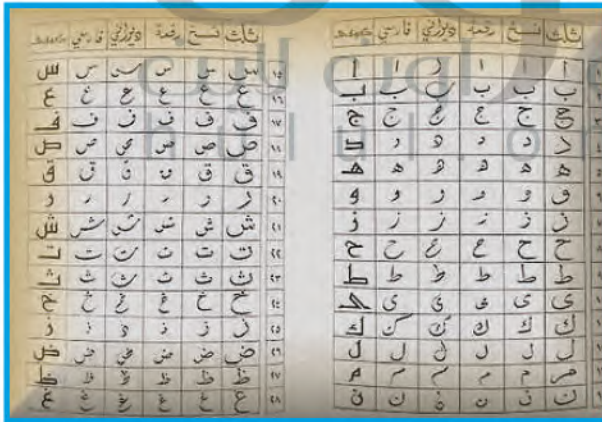 ثلث نسخ رقعة ديواني فارسي
ا ا ا ا ا ا
ب ب ب ب ب ب
ج ج ج ج ج ج
د د د د د د
ه ه ه ه ه ه
و و و و و و
ز ز ز ز ز ز
ح ح ح ح ح ح
ط ط ط ط ط ط
ى ى ى ى ى ى
ك ك ك ك ك ك
ل ل ل ل ل ل
م م م م م م
ن ن ن ن ن ن
ثلث نسخ رقعة ديواني فارسي
١٥ س س س س س س
١٦ ع ع ع ع ع ع
١٧ ف ف ف ف ف ف
١٨ ص ص ص ص ص ص
١٩ ق ق ق ق ق ق
٢٠ ر ر ر ر ر ر
٢١ ش ش ش ش ش ش
٢٢ ت ت ت ت ت ت
٢٣ ث ث ث ث ث ث
٢٤ خ خ خ خ خ خ
٢٥ ذ ذ ذ ذ ذ ذ
٢٦ ض ض ض ض ض ض
٢٧ ظ ظ ظ ظ ظ ظ
٢٨ غ غ غ غ غ غ
hulul.o